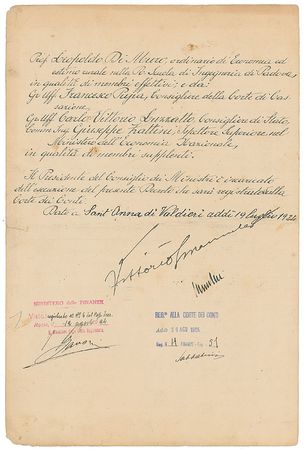 Prof. Leopoldo Di Muro, ordinario di Economia ed
estimo rurale nella R. Scuola di Ingegneria di Padova,
in qualità di membri effettivi; e da:
Gr. Uff. Francesco Pagia, Consigliere della Corte di Cas-
sazione,
Gr. Uff. Carlo Vittorio Luzzatto, Consigliere di Stato,
Comm. Ing. Giuseppe Zattini, Ispettore Superiore nel
Ministero dell'Economia Nazionale,
in qualità di membri supplenti.
Il Presidente del Consiglio dei Ministri è incaricato
dell'esecuzione del presente Decreto che sarà registrato alla
Corte dei Conti.
Dato a Sant'Anna di Valdieri addì 14 luglio 1924
Vittorio Emanuele
Mussolini
MINISTERO delle FINANZE
REG.TO ALLA CORTE DEI CONTI
Addì
Reg. N. 11 FINANZE